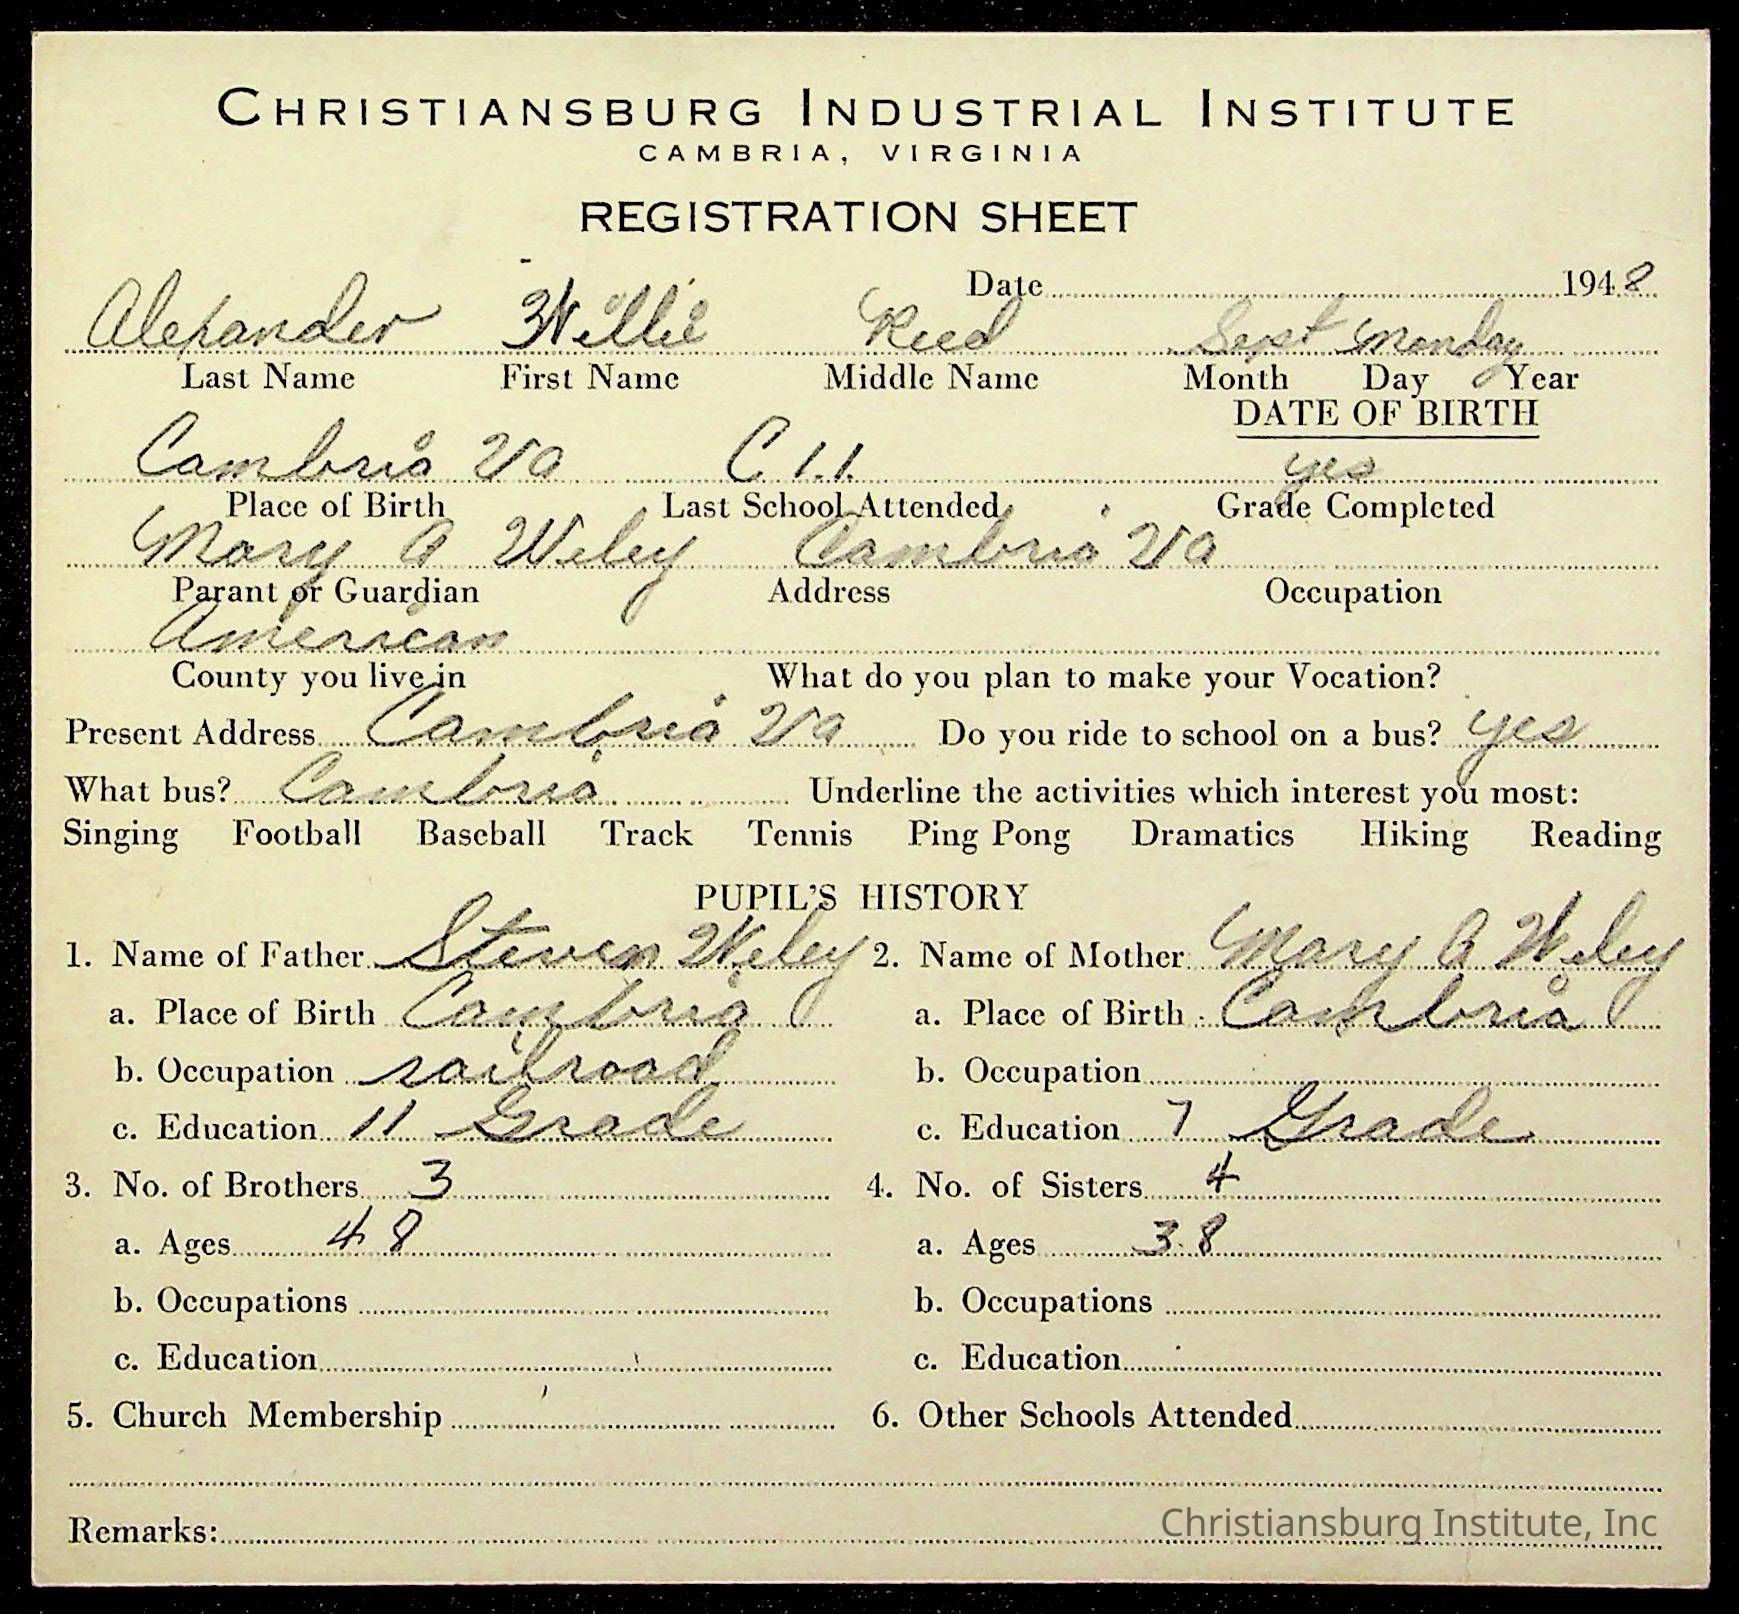 CHRISTIANSBURG INDUSTRIAL INSTITUTE
CAMBRIA, VIRGINIA
REGISTRATION SHEET
Date 1948
Alexander Willie Reed Sept Monday
Last Name First Name Middle Name Month Day Year
DATE OF BIRTH
Cambria Va C I.I. yes
Place of Birth Last School Attended Grade Completed
Mary A Wiley Cambria Va
Parant or Guardian Address Occupation
American
County you live in What do you plan to make your Vocation?
Present Address Cambria Va Do you ride to school on a bus? yes
What bus? Cambria Underline the activities which interest you most:
Singing Football Baseball Track Tennis Ping Pong Dramatics Hiking Reading
PUPIL'S HISTORY
1. Name of Father Steven Wiley 2. Name of Mother Mary A Wiley
a. Place of Birth Cambria a. Place of Birth Cambria
b. Occupation railroad b. Occupation
c. Education 11 Grade c. Education 7 Grade
3. No. of Brothers 3 4. No. of Sisters 4
a. Ages 4 8 a. Ages 3 8
b. Occupations b. Occupations
c. Education c. Education
5. Church Membership 6. Other Schools Attended
Remarks:
Christiansburg Institute, Inc